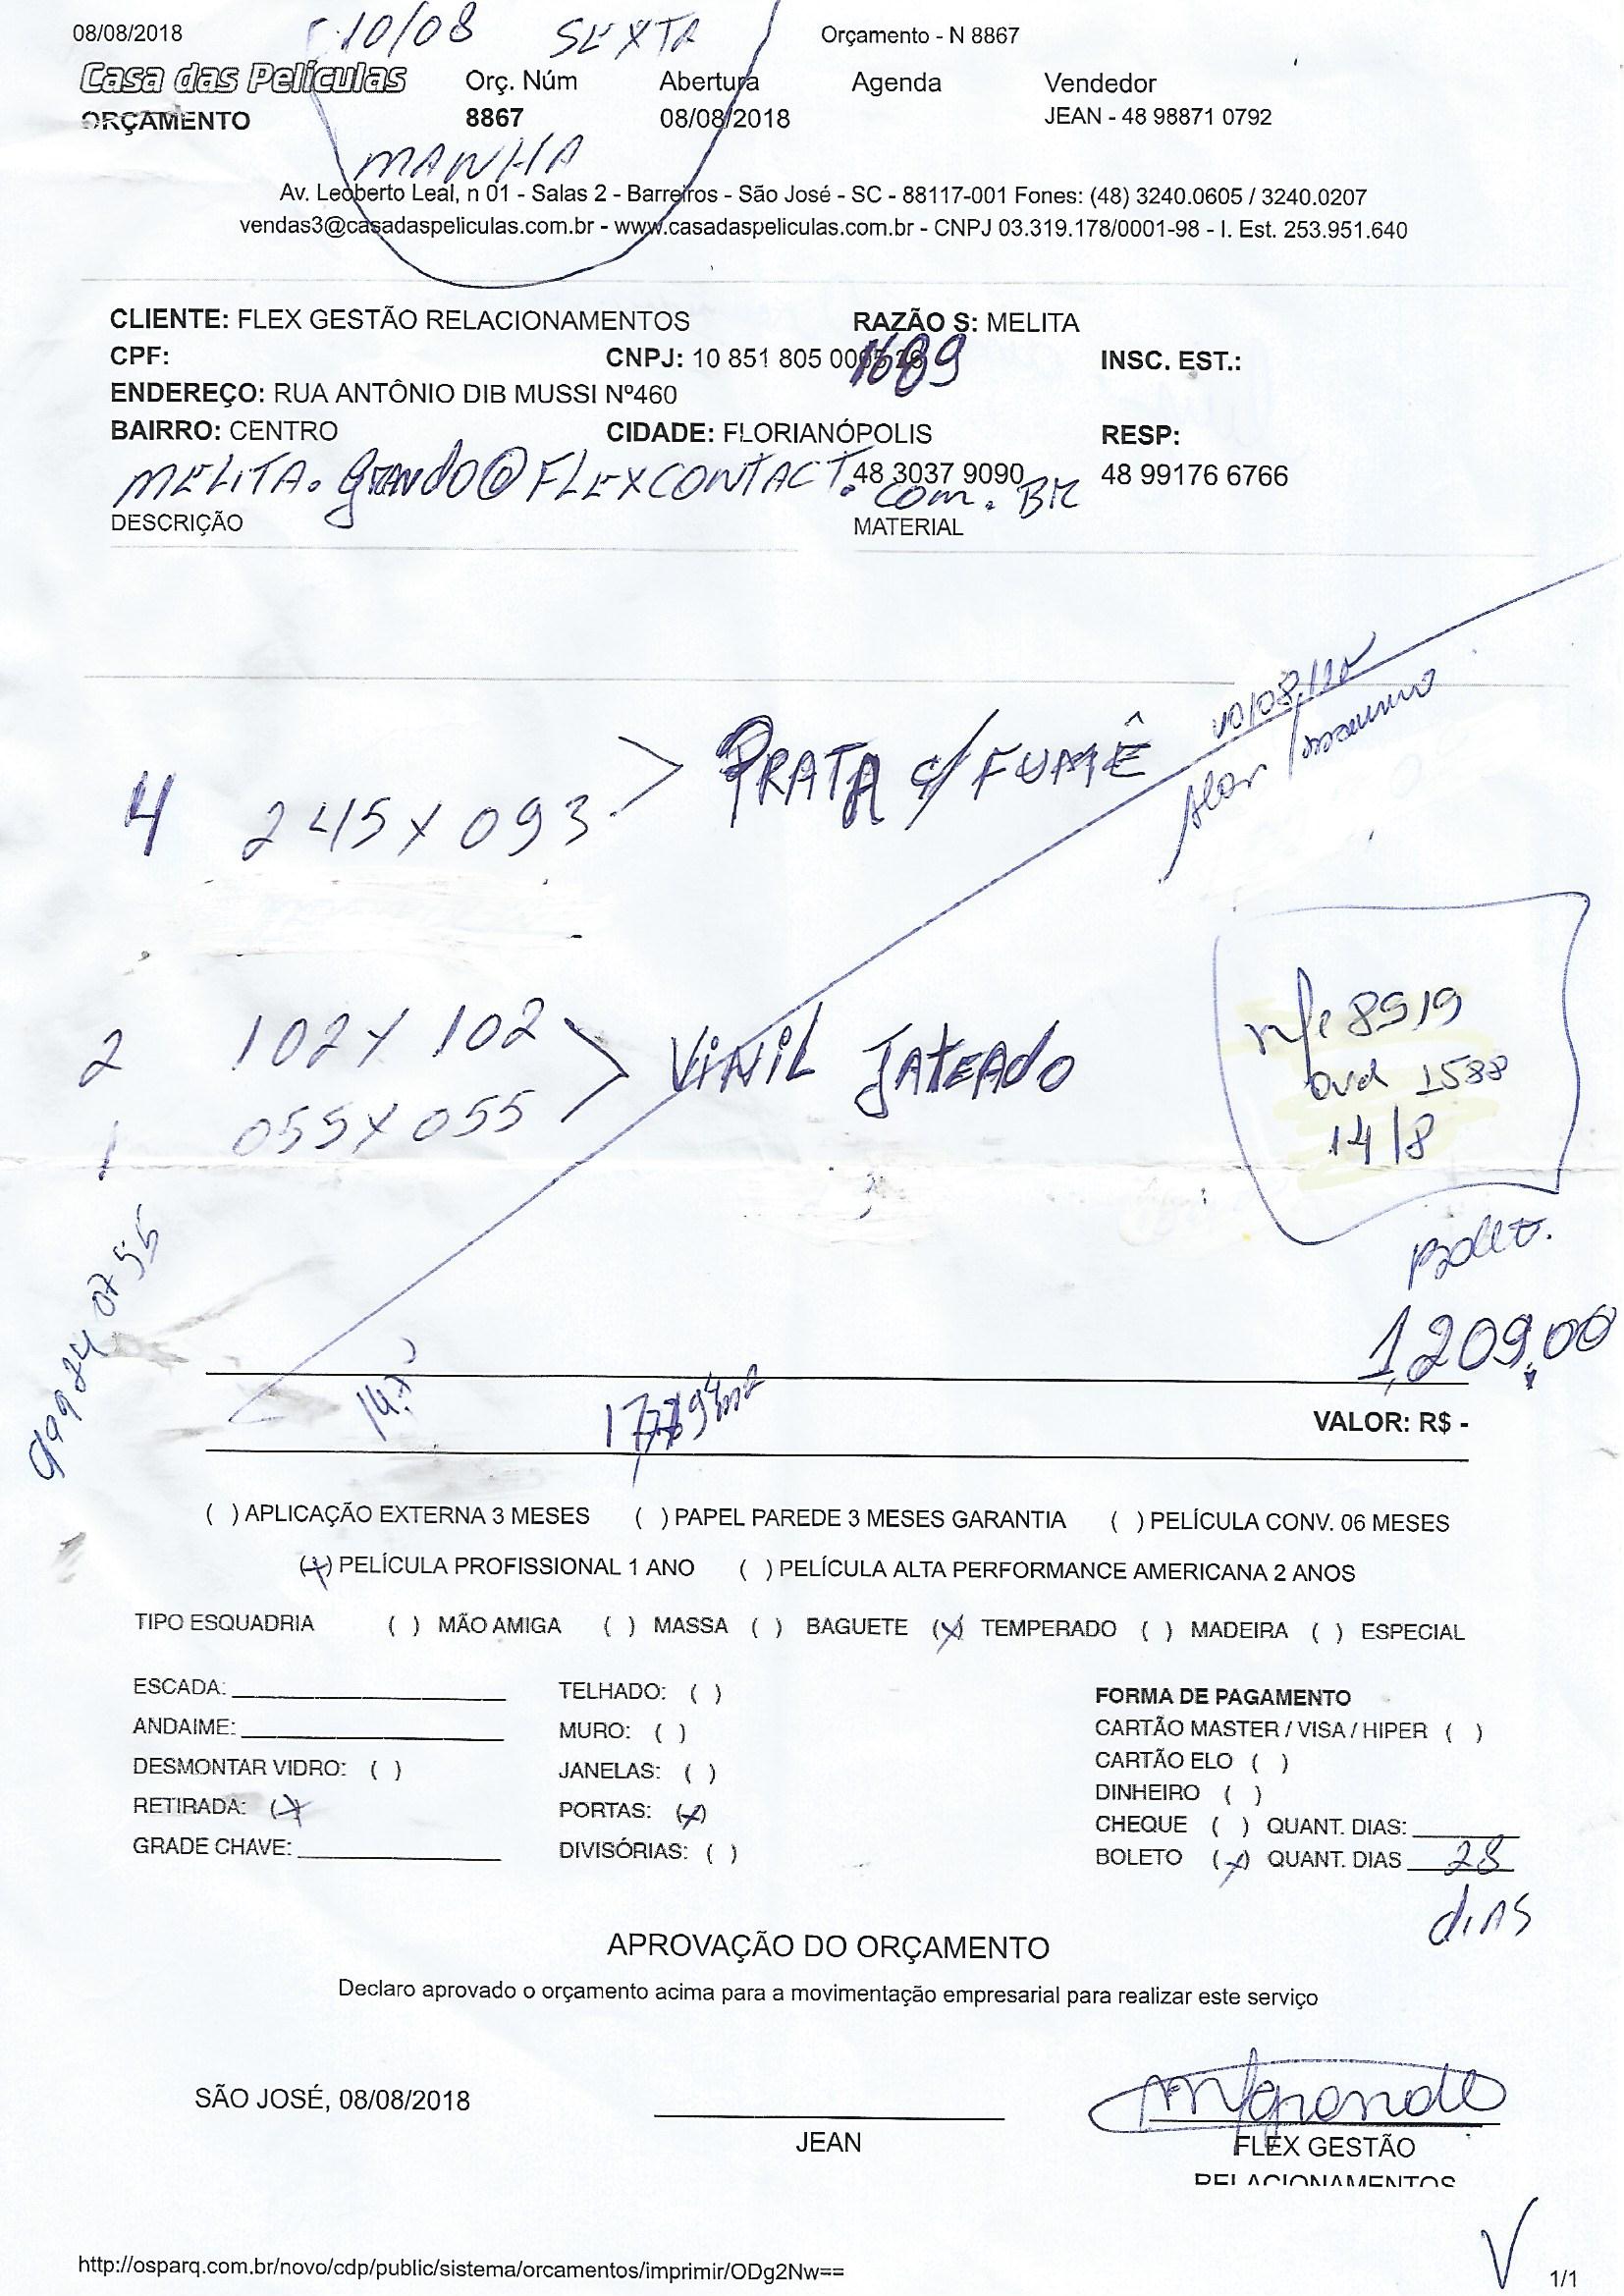 08/08/2018 10/08 SEXTA Orçamento - N 8867
Casa das Películas Orç. Núm Abertura Agenda Vendedor
ORÇAMENTO 8867 08/08/2018 JEAN - 48 98871 0792
MANHA
Av. Leoberto Leal, n 01 - Salas 2 - Barreiros - São José - SC - 88117-001 Fones: (48) 3240.0605 / 3240.0207
vendas3@casadaspeliculas.com.br - www.casadaspeliculas.com.br - CNPJ 03.319.178/0001-98 - I. Est. 253.951.640
CLIENTE: FLEX GESTÃO RELACIONAMENTOS RAZÃO S: MELITA
CPF: CNPJ: 10 851 805 00 1689 INSC. EST.:
ENDEREÇO: RUA ANTÔNIO DIB MUSSI Nº460
BAIRRO: CENTRO CIDADE: FLORIANÓPOLIS RESP:
48 3037 9090 48 99176 6766
MELITA.grando@FLEXCONTACT.com.BR
DESCRIÇÃO MATERIAL
10/08/18
4 245 x 093 > PRATA c/ FUMÊ
2 102 x 102 > VINIL JATEADO
1 055 x 055
nfe 8919
1588
14/8
Boleto.
99924 0755
1.209,00
VALOR: R$ -
( ) APLICAÇÃO EXTERNA 3 MESES ( ) PAPEL PAREDE 3 MESES GARANTIA ( ) PELÍCULA CONV. 06 MESES
(x) PELÍCULA PROFISSIONAL 1 ANO ( ) PELÍCULA ALTA PERFORMANCE AMERICANA 2 ANOS
TIPO ESQUADRIA ( ) MÃO AMIGA ( ) MASSA ( ) BAGUETE (x) TEMPERADO ( ) MADEIRA ( ) ESPECIAL
ESCADA: TELHADO: ( ) FORMA DE PAGAMENTO
ANDAIME: MURO: ( ) CARTÃO MASTER / VISA / HIPER ( )
DESMONTAR VIDRO: ( ) JANELAS: ( ) CARTÃO ELO ( )
DINHEIRO ( )
RETIRADA: (x) PORTAS: (x) CHEQUE ( ) QUANT. DIAS:
GRADE CHAVE: DIVISÓRIAS: ( ) BOLETO (x) QUANT. DIAS 28
dias
APROVAÇÃO DO ORÇAMENTO
Declaro aprovado o orçamento acima para a movimentação empresarial para realizar este serviço
SÃO JOSÉ, 08/08/2018
JEAN FLEX GESTÃO
RELACIONAMENTOS
http://osparq.com.br/novo/cdp/public/sistema/orcamentos/imprimir/ODg2Nw== 1/1